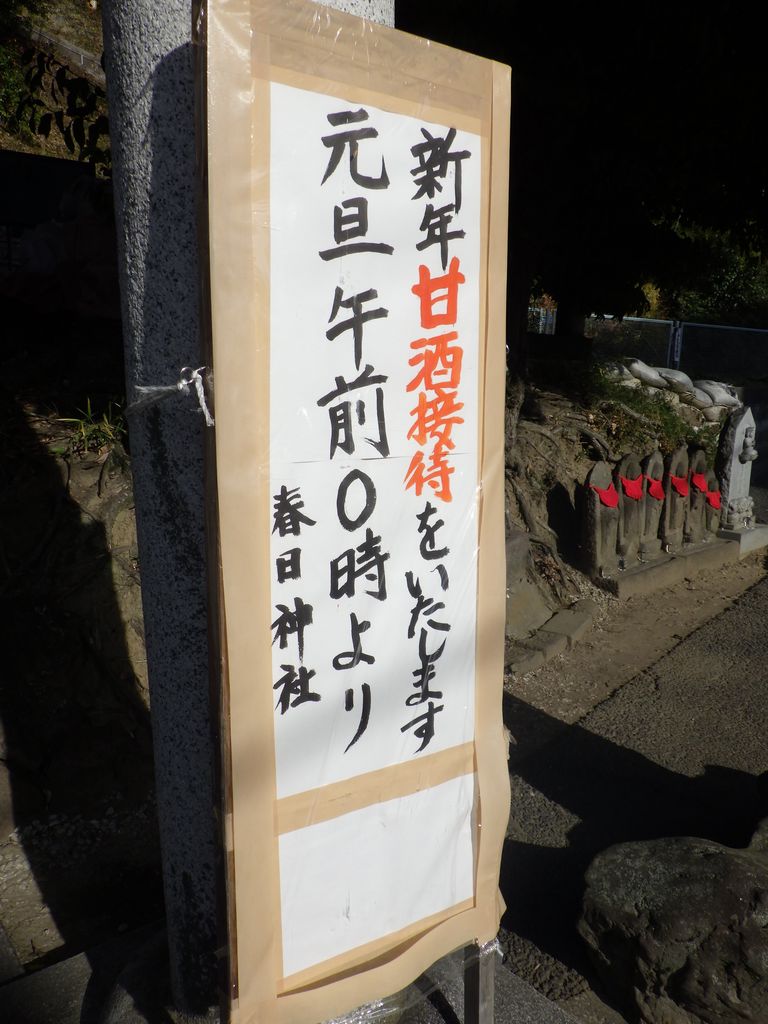 新年甘酒接待をいたします
元旦午前0時より
春日神社